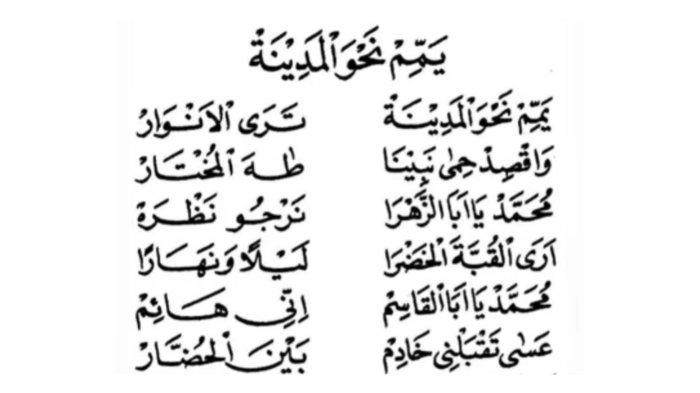 يَمِّمْ نَحْوَالْمَدِيْنَةْ
يَمِّمْ نَحْوَالْمَدِيْنَةْ تَرَى الْاَنْوَارْ
وَاقْصِدْ حِمٰى نَبِيْنَا طٰهَ الْمُخْتَارْ
مُحَمَّدْ يَا اَبَا الزَّهْرَا نَرْجُو نَظْرَهْ
اَرَى الْقُبَّةَ الْخَضْرَا لَيْلًا وَنَهَارًا
مُحَمَّدْ يَا اَبَا الْقَاسِمْ اِنِّي هَائِمْ
عَسٰى تَقْبَلْنِي خَادِمْ بَيْنَ الْحُضَّارْ